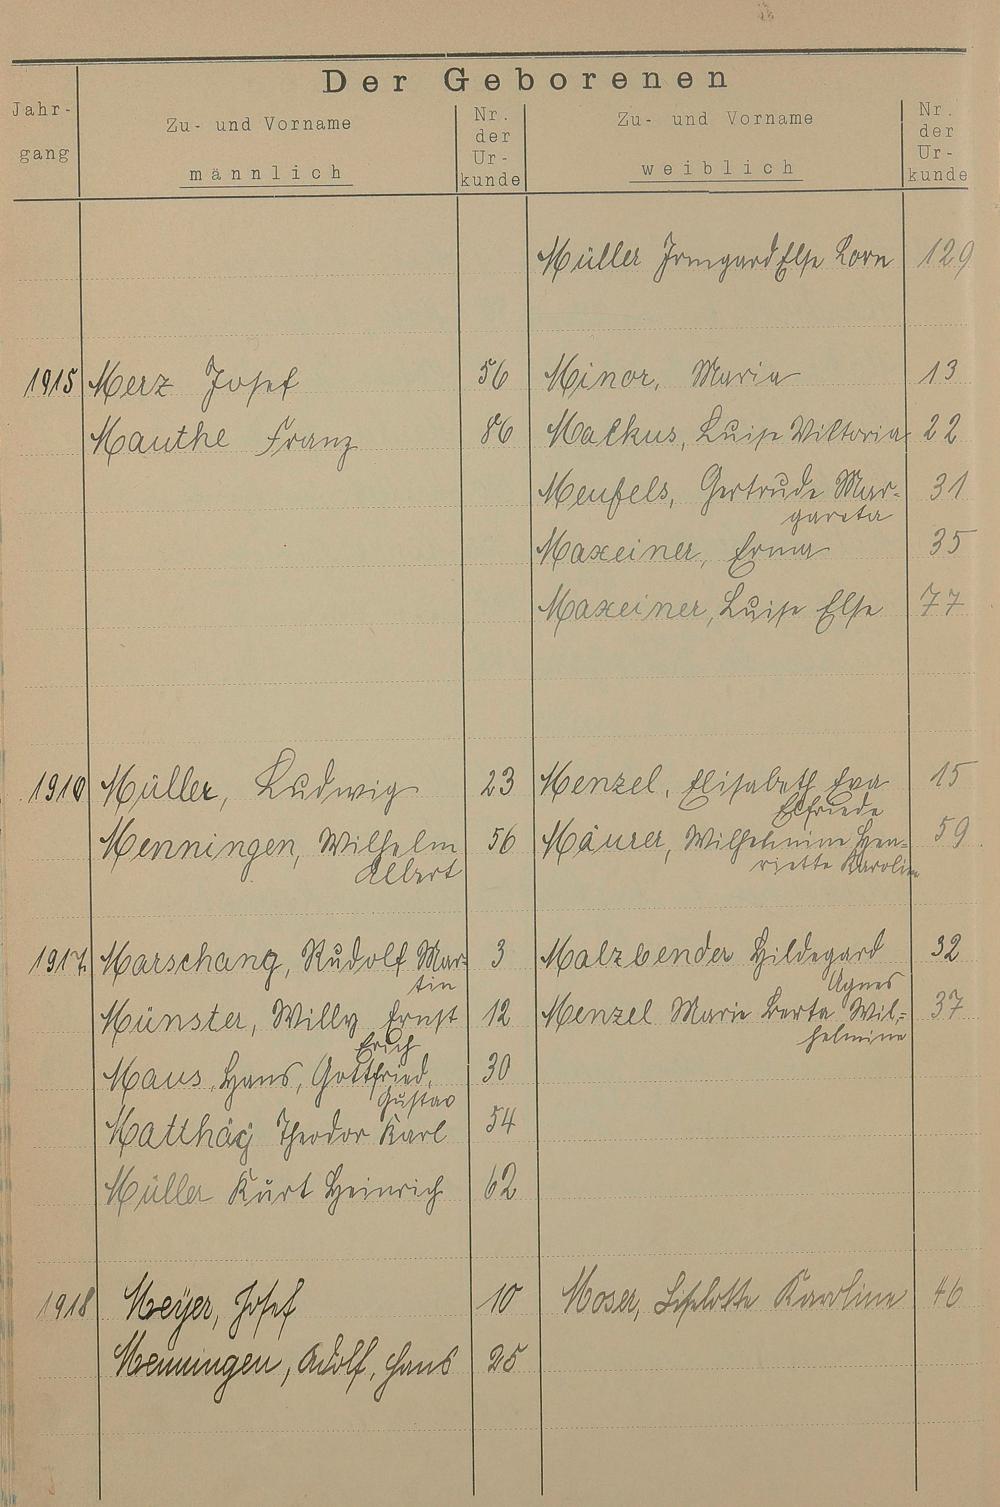 Der Geborenen
Jahr-
gang
Zu- und Vorname
männlich
Nr.
der
Ur-
kunde
Zu- und Vorname
weiblich
Nr.
der
Ur-
kunde
Müller Irmgard Else Lore 129
1915 Merz Josef 56 Minor, Maria 13
Mauthe Franz 86 Malkus, Luise Viktoria 22
Meufels, Gertrude Mar- 31
gareta
Maxeiner, Erna 35
Maxeiner, Luise Else 77
1916 Müller, Ludwig 23 Menzel, Elisabeth Eva 15
Elfriede
Menningen, Wilhelm 56 Mäurer, Wilhelmine Hen- 59
Albert riette Karoline
1917 Marschang, Rudolf Mar- 3 Malzbender Hildegard 32
tin Agnes
Münster, Willy Ernst 12 Menzel Marie Berta Wil- 37
Erich helmine
Maus, Hans, Gottfried, 30
Gustav
Matthäy Theodor Karl 54
Müller Kurt Heinrich 62
1918 Meyer, Josef 10 Moser, Liselotte Karoline 46
Menningen, Adolf, Hans 25